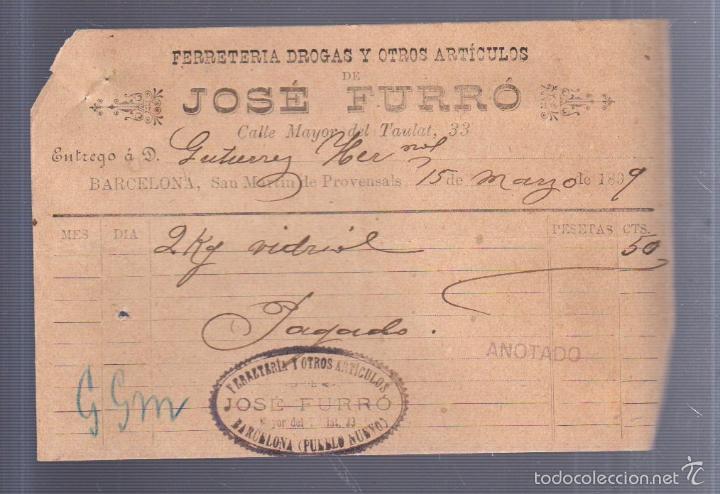 FERRETERIA DROGAS Y OTROS ARTÍCULOS
DE
JOSÉ FURRÓ
Calle Mayor del Taulat, 33
Entrego á D. Gutierrez Her
BARCELONA, San Martín de Provensals, 15 de Marzo de 1899
MES DIA PESETAS CTS.
2 Kg vidriol 50
Pagado.
ANOTADO
FERRETERÍA Y OTROS ARTICULOS
DE
JOSÉ FURRÓ
Mayor del Taulat, 33
BARCELONA (PUEBLO NUEVO)
todocoleccion